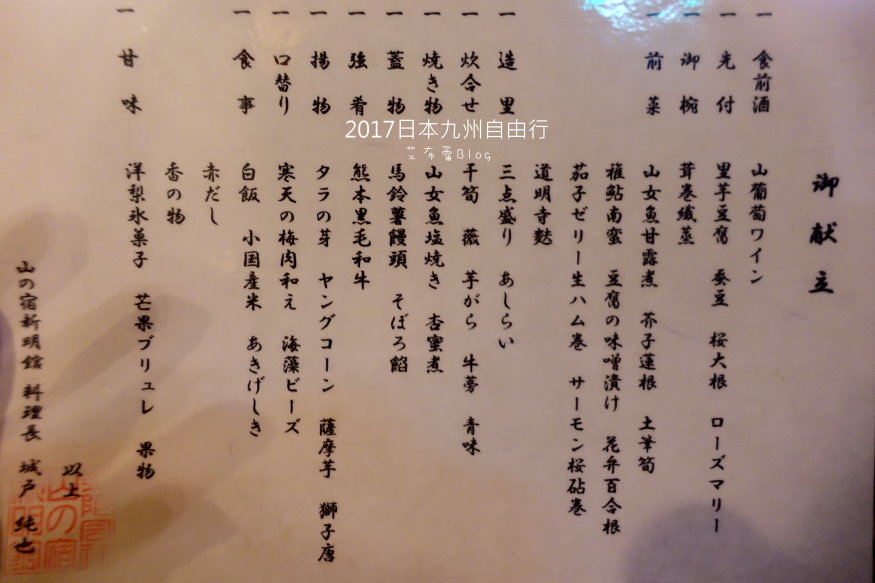 御献立
一 食前酒 山葡萄ワイン
一 先付 里芋豆腐 蚕豆 桜大根 ローズマリー
一 御椀 茸巻繊蒸
一 前菜 山女魚甘露煮 芥子蓮根 土筆筍
稚鮎南蛮 豆腐の味噌漬け 花弁百合根
茄子ゼリー生ハム巻 サーモン桜砧巻
道明寺麩
一 造里 三点盛り あしらい
一 炊合せ 干筍 薇 芋がら 牛蒡 青味
一 焼き物 山女魚塩焼き 杏蜜煮
一 蓋物 馬鈴薯饅頭 そぼろ餡
一 強肴 熊本黒毛和牛
一 揚物 タラの芽 ヤングコーン 薩摩芋 獅子唐
一 口替り 寒天の梅肉和え 海藻ビーズ
一 食事 白飯 小国産米 あきげしき
赤だし
香の物
一 甘味 洋梨氷菓子 芒果ブリュレ 果物
以上
山の宿新明館 料理長 城戸 純也
2017日本九州自由行
艾布蕾Blog